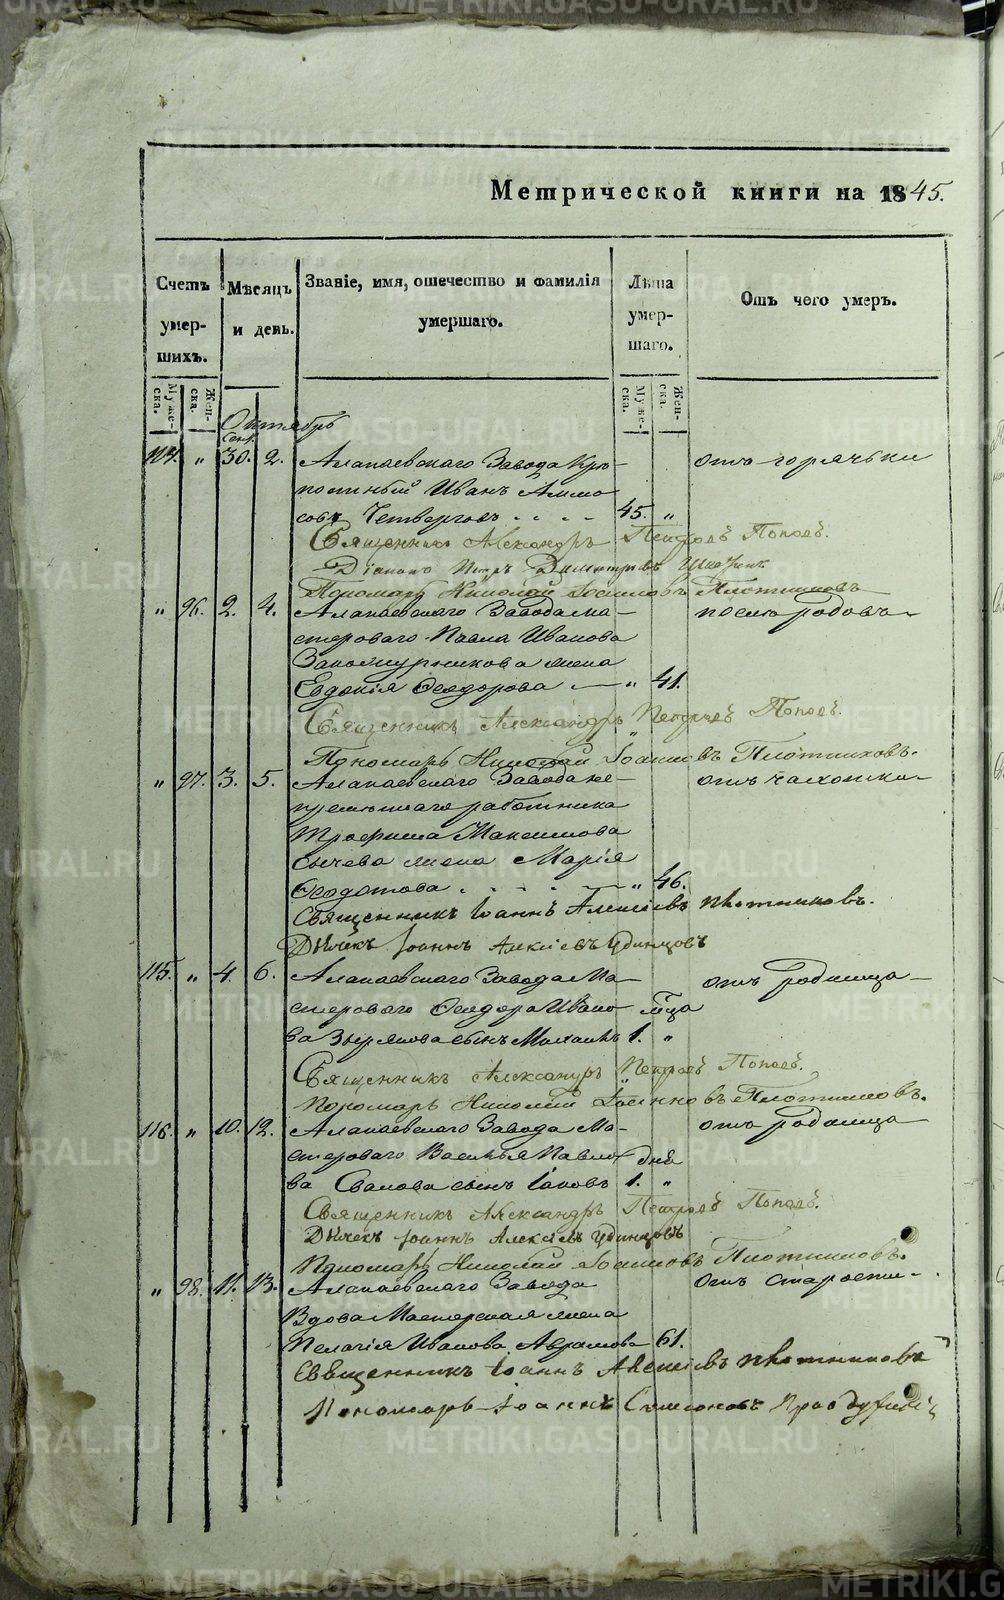 METRIKI.GASO-URAL.RU
Метрической книги на 1845.
Счетъ умершихъ.
Мужеска.
Женска.
Мѣсяцъ и день.
Званіе, имя, отечество и фамилія умершаго.
Лѣта умершаго.
Мужеска.
Женска.
Отъ чего умеръ.
Октябрь
Сент.
114. " 30. 2. Алапаевскаго Завода Кре- отъ горячьки
постный Иванъ Аммо
совъ Четверговъ 45. "
Священникъ Александръ Петровъ Поповъ.
Діаконъ Петръ Димитріевъ
Пономарь Николай Іоанновъ Плотниковъ
" 96. 2. 4. Алапаевскаго Завода ма- послѣ родовъ
стероваго Павла Иванова
жена
Евдокія Ѳеодорова " 41.
Священникъ Александръ Петровъ Поповъ.
Пономарь Николай Іоанновъ Плотниковъ.
" 97. 3. 5. Алапаевскаго Завода не- отъ чахотки
премѣннаго работника
Трофима Максимова
Сычева жена Марія
Ѳеодотова " 46.
Священникъ Іоаннъ Алексіевъ Плотниковъ.
Дьячекъ Іоаннъ Алексіевъ Удинцовъ
115. " 4. 6. Алапаевскаго Завода Ма- отъ родимца
стероваго Ѳеодора Ивано- мѣсца
ва Зырянова сынъ Михаилъ 1. "
Священникъ Александръ Петровъ Поповъ.
Пономарь Николай Іоанновъ Плотниковъ.
116. " 10. 12. Алапаевскаго Завода Ма- отъ родимца
стероваго Василья Павло- дня
ва сынъ Іаковъ 1. "
Священникъ Александръ Петровъ Поповъ.
Дьячекъ Іоаннъ Алексіевъ Удинцовъ
Пономарь Николай Іоанновъ Плотниковъ.
" 98. 11. 13. Алапаевскаго Завода отъ старости
Вдова Мастерская жена
Пелагія Иванова Абрамова 61.
Священникъ Іоаннъ Алексіевъ Плотниковъ
Пономарь Іоаннъ Симеоновъ